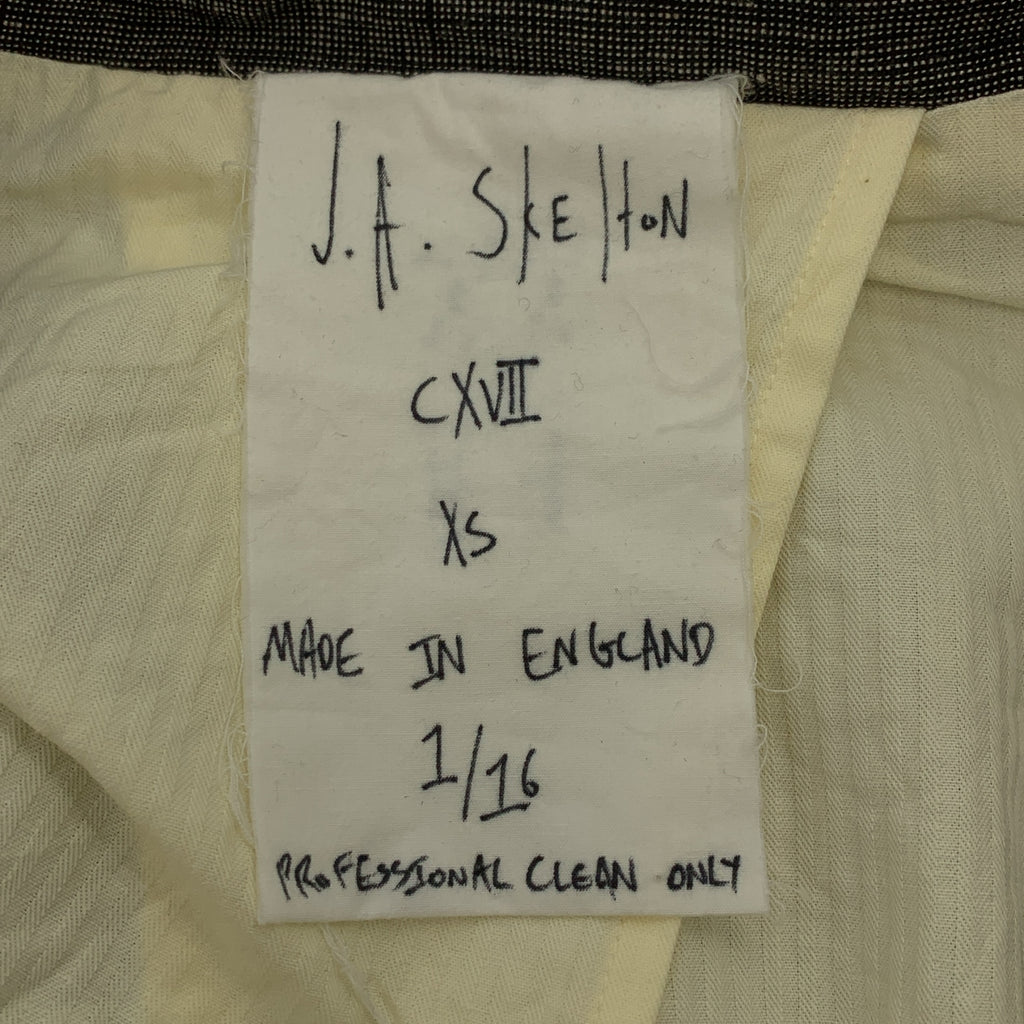 J.A. SKElton
CXVII
XS
MADE IN ENGLAND
1/16
PROFESSIONAL CLEAN ONLY